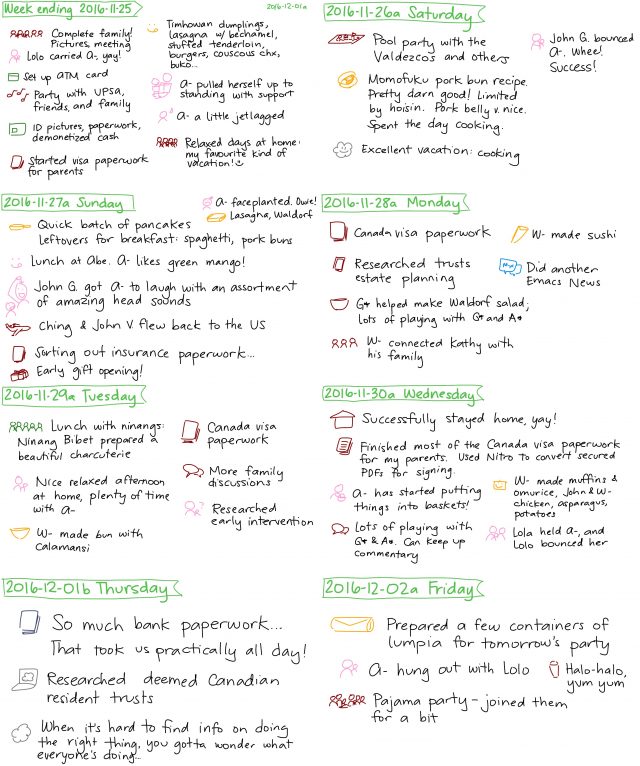 Week ending 2016-11-25
2016-12-01a
Complete family!
Pictures, meeting
Lolo carried A-, yay!
Set up ATM card
Party with UPSA,
friends, and family
ID pictures, paperwork,
demonetized cash
Started visa paperwork
for parents
Timhowan dumplings,
lasagna w/ bechamel,
stuffed tenderloin,
burgers, couscous chx,
buko...
A- pulled herself up to
standing with support
A- a little jetlagged
Relaxed days at home:
my favourite kind of
vacation!
2016-11-26a Saturday
Pool party with the
Valdezcos and others
Momofuku pork bun recipe.
Pretty darn good! Limited
by hoisin. Pork belly v. nice.
Spent the day cooking.
Excellent vacation: cooking
John G. bounced
A-. Whee!
Success!
2016-11-27a Sunday
A- faceplanted. Owie!
Lasagna, Waldorf
Quick batch of pancakes
Leftovers for breakfast: spaghetti, pork buns
Lunch at Abe. A- likes green mango!
John G. got A- to laugh with an assortment
of amazing head sounds
Ching & John V. flew back to the US
Sorting out insurance paperwork...
Early gift opening!
2016-11-28a Monday
Canada visa paperwork
Researched trusts
estate planning
G* helped make Waldorf salad;
lots of playing with G* and A*
W- connected Kathy with
his family
W- made sushi
Did another
Emacs News
2016-11-29a Tuesday
Lunch with ninangs:
Ninang Bibet prepared a
beautiful charcuterie
Nice relaxed afternoon
at home, plenty of time
with A-
W- made bun with
Calamansi
Canada visa
paperwork
More family
discussions
Researched
early intervention
2016-11-30a Wednesday
Successfully stayed home, yay!
Finished most of the Canada visa paperwork
for my parents. Used Nitro to convert secured
PDFs for signing.
A- has started putting
things into baskets!
Lots of playing with
G* & A*. Can keep up
commentary
W- made muffins &
omurice, John & W-
chicken, asparagus,
potatoes
Lola held A-, and
Lolo bounced her
2016-12-01b Thursday
So much bank paperwork...
That took us practically all day!
Researched deemed Canadian
resident trusts
When it's hard to find info on doing
the right thing, you gotta wonder what
everyone's doing...
2016-12-02a Friday
Prepared a few containers of
lumpia for tomorrow's party
A- hung out with Lolo
Halo-halo,
yum yum
Pajama party - joined them
for a bit